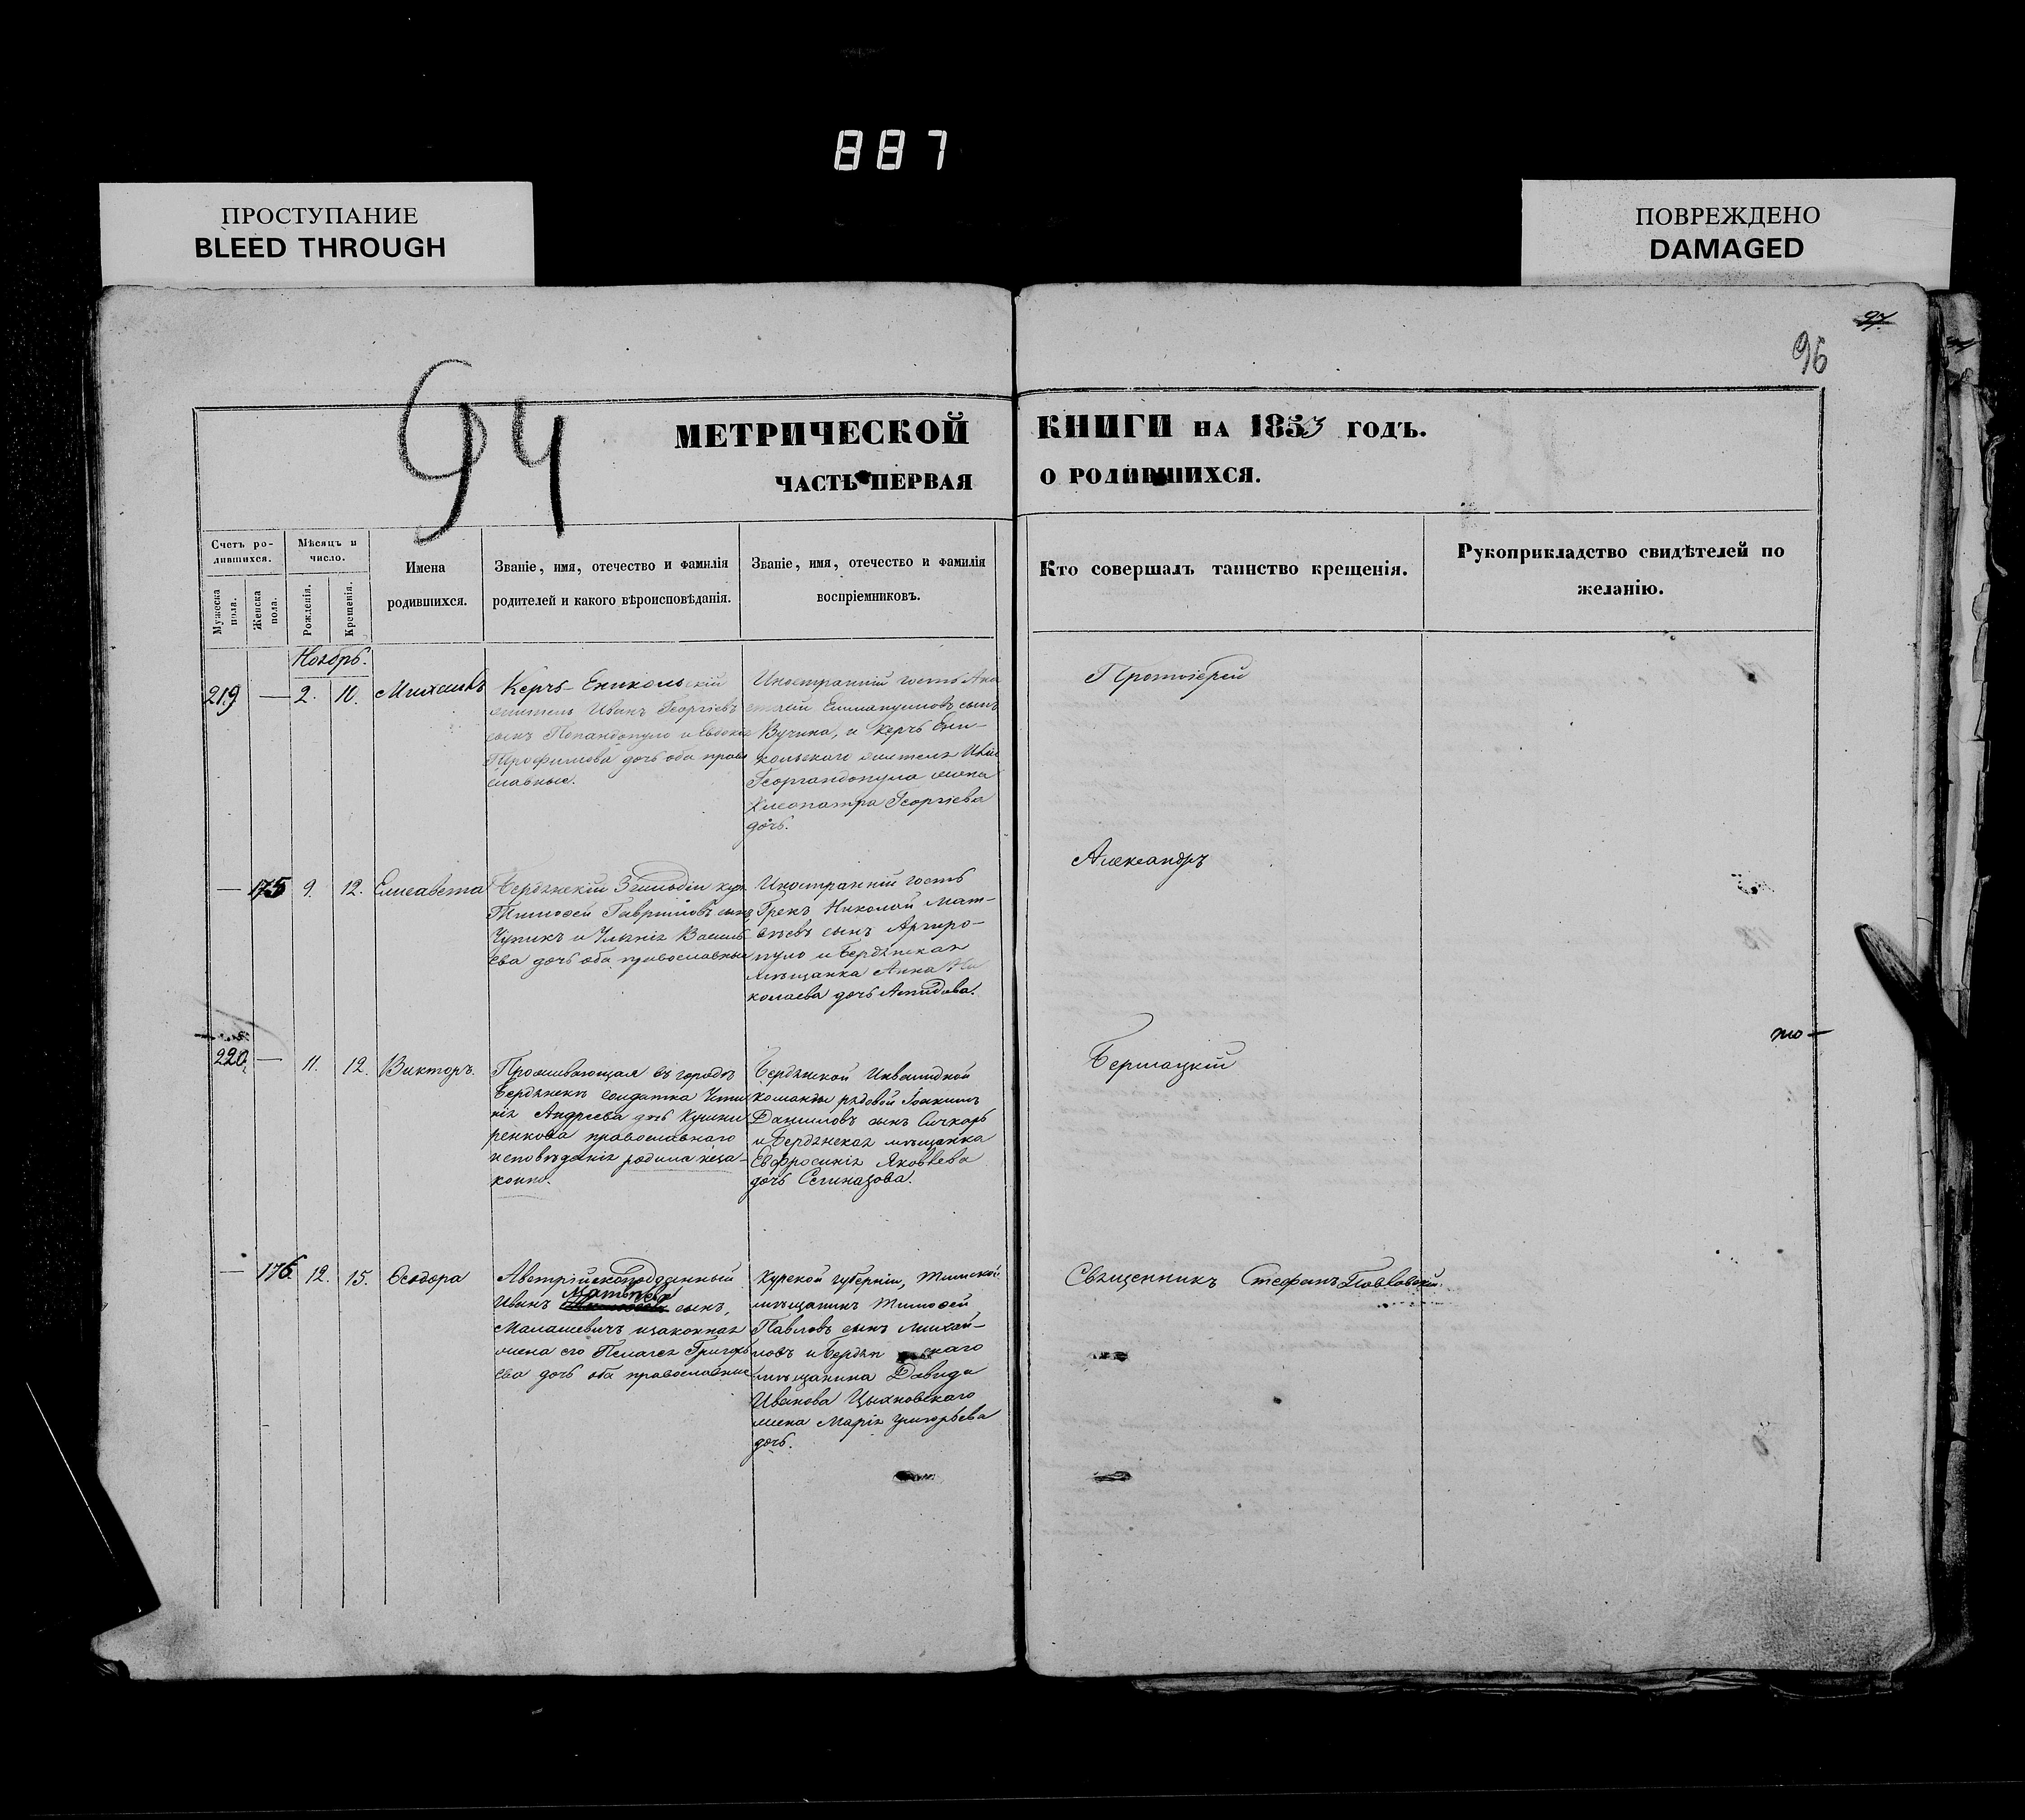 887
ПРОСТУПАНИЕ
BLEED THROUGH
ПОВРЕЖДЕНО
DAMAGED
97
96
94
МЕТРИЧЕСКОЙ КНИГИ НА 1853 ГОДЪ.
ЧАСТЬ ПЕРВАЯ О РОДИВШИХСЯ.
Счетъ ро-
дившихся.
Мужеска
пола.
Женска
пола.
Мѣсяцъ и
число.
Рожденія.
Крещенія.
Имена
родившихся.
Званіе, имя, отечество и фамилія
родителей и какого вѣроисповѣданія.
Званіе, имя, отечество и фамилія
воспріемниковъ.
Кто совершалъ таинство крещенія.
Рукоприкладство свидѣтелей по
желанію.
Ноябрь.
219 — 2. 10. Михаилъ
Керчь-Еникольскій
житель Иванъ Георгіевъ
сынъ Попандопуло и Евдокія
Трофимова дочь оба право
славные.
Иностранній гость Ана
стасій Еммануиловъ сынъ
Вучина, и Керчь Ени-
кольскаго жителя Ива
Георгандопула жена
Клеопатра Георгіева
дочь.
Протоіерей
— 175 9. 12. Елисавета
Бердянскій 3 гильдіи куп.
Тимоѳей Гавріиловъ сынъ
Чупикъ и Ульянія Василь
ева дочь оба православные
Иностранній гость
Грекъ Николай Мат-
вѣевъ сынъ Аргиро-
пуло и Бердянская
мѣщанка Анна Ни
колаева дочь
Александръ
220. — 11. 12. Викторъ.
Проживающая въ городѣ
Бердянскѣ солдатка
Андреева дочь
православнаго
исповѣданія родила неза-
конно.
Бердянской Инвалидной
команды рядовой Іоакимъ
Даниловъ сынъ Сичкарь
и Бердянская мѣщанка
Евфросинія Яковлева
дочь
Бершацкій
то —
— 176. 12. 15. Ѳеодора
Австрійскоподданный
Матвѣевъ
Иванъ сынъ,
Малашевичъ и законная
жена его Пелагея Григорь
ева дочь оба православные
Курской губерніи, Тимской
мѣщанинъ Тимоѳей
Павловъ сынъ Михай-
ловъ и Бердян скаго
мѣщанина Давида
Иванова Цыхновскаго
жена Марія Григорьева
дочь.
Священникъ Стефанъ Павловскій.